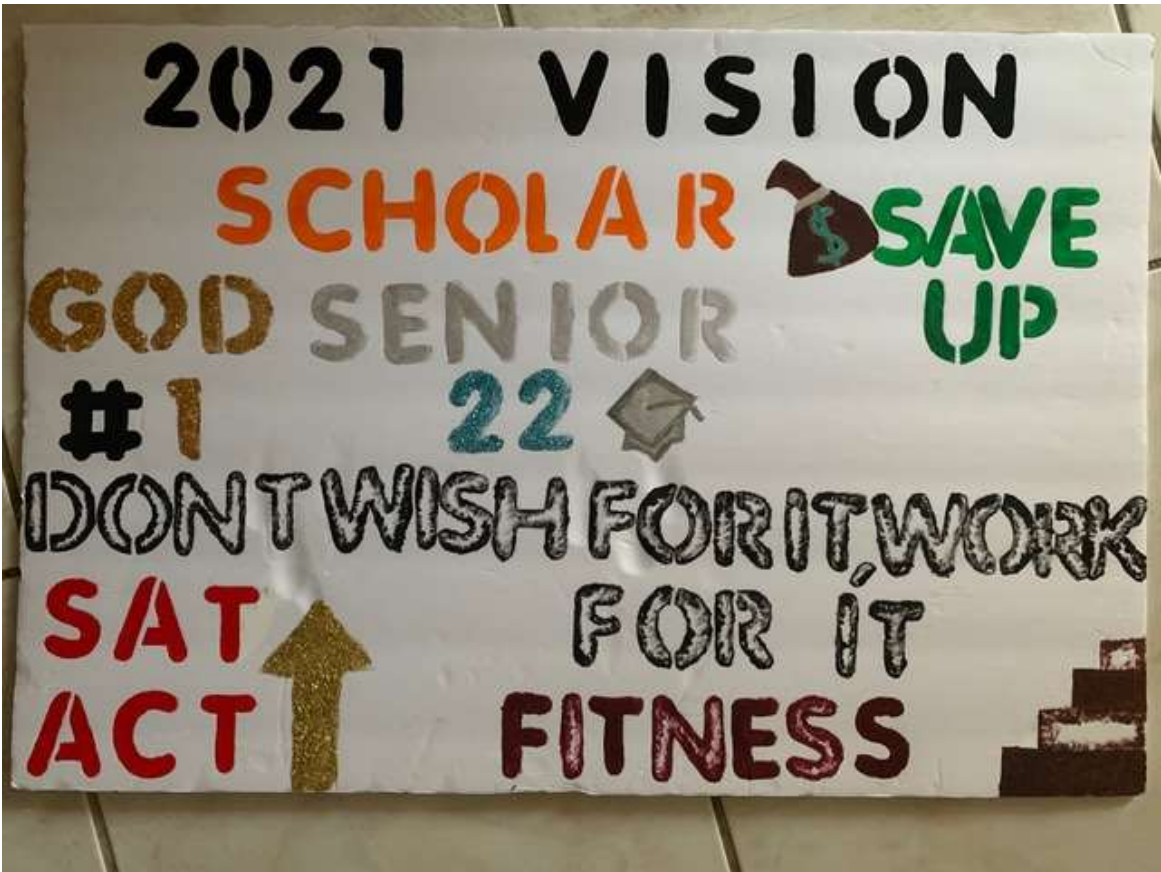 2021 VISION
SCHOLAR
$ SAVE
UP
GOD SENIOR
#1 22
DONT WISH FOR IT, WORK
FOR IT
SAT
ACT
FITNESS